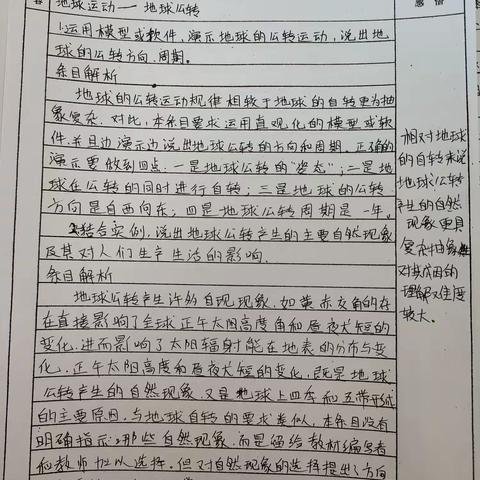 地球运动 — 地球公转
1.运用模型或软件，演示地球的公转运动，说出地
球的公转方向、周期。
条目解析
地球的公转运动规律相较于地球的自转更为抽
象复杂。对比，本条目要求运用直观化的模型或软
件，并且边演示边说出地球公转的方向和周期。正确的
演示要做到四点：一是地球公转的"姿态"；二是地
球在公转的同时进行自转；三是地球的公转
方向是自西向东；四是地球公转周期是一年。
2.结合实例，说出地球公转产生的主要自然现象
及其对人们生产生活的影响。
条目解析
地球公转产生许多自现现象，如黄赤交角的存
在直接影响了全球正午太阳高度角和昼夜长短的
变化，进而影响了太阳辐射能在地表的分布与变
化。正午太阳高度和昼夜长短的变化，既是地球
公转产生的自然现象，又是地球上四季和五带形成
的主要原因。与地球自转的要求类似，本条目没有
明确指示哪些自然现象，而是留给教材编写者
和教师加以选择。但对自然现象的选择提出了方向
感悟
相对地球
的自转来说，
地球公转
产生的自然
现象更具
复杂抽象性
对其成因的
理解难度
较大。